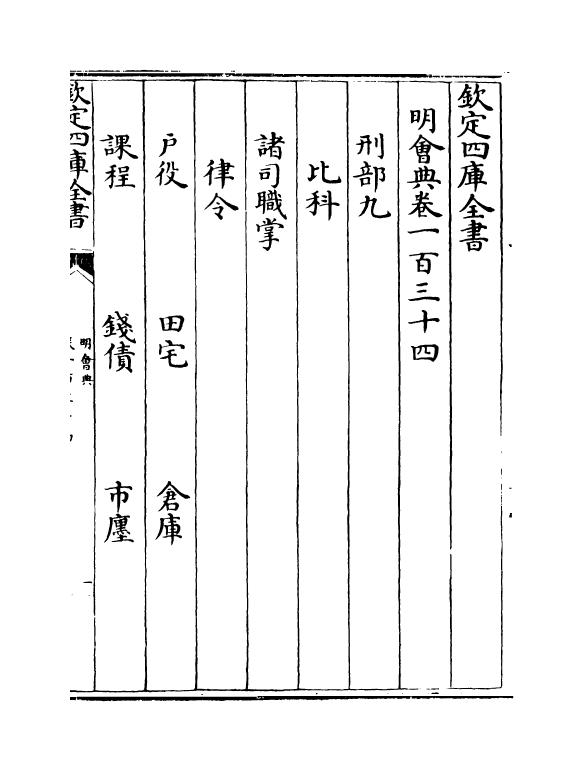 欽定四庫全書
明會典卷一百三十四
刑部九
比科
諸司職掌
律令
戶役　田宅　倉庫
課程　錢債　市廛
欽定四庫全書
明會典